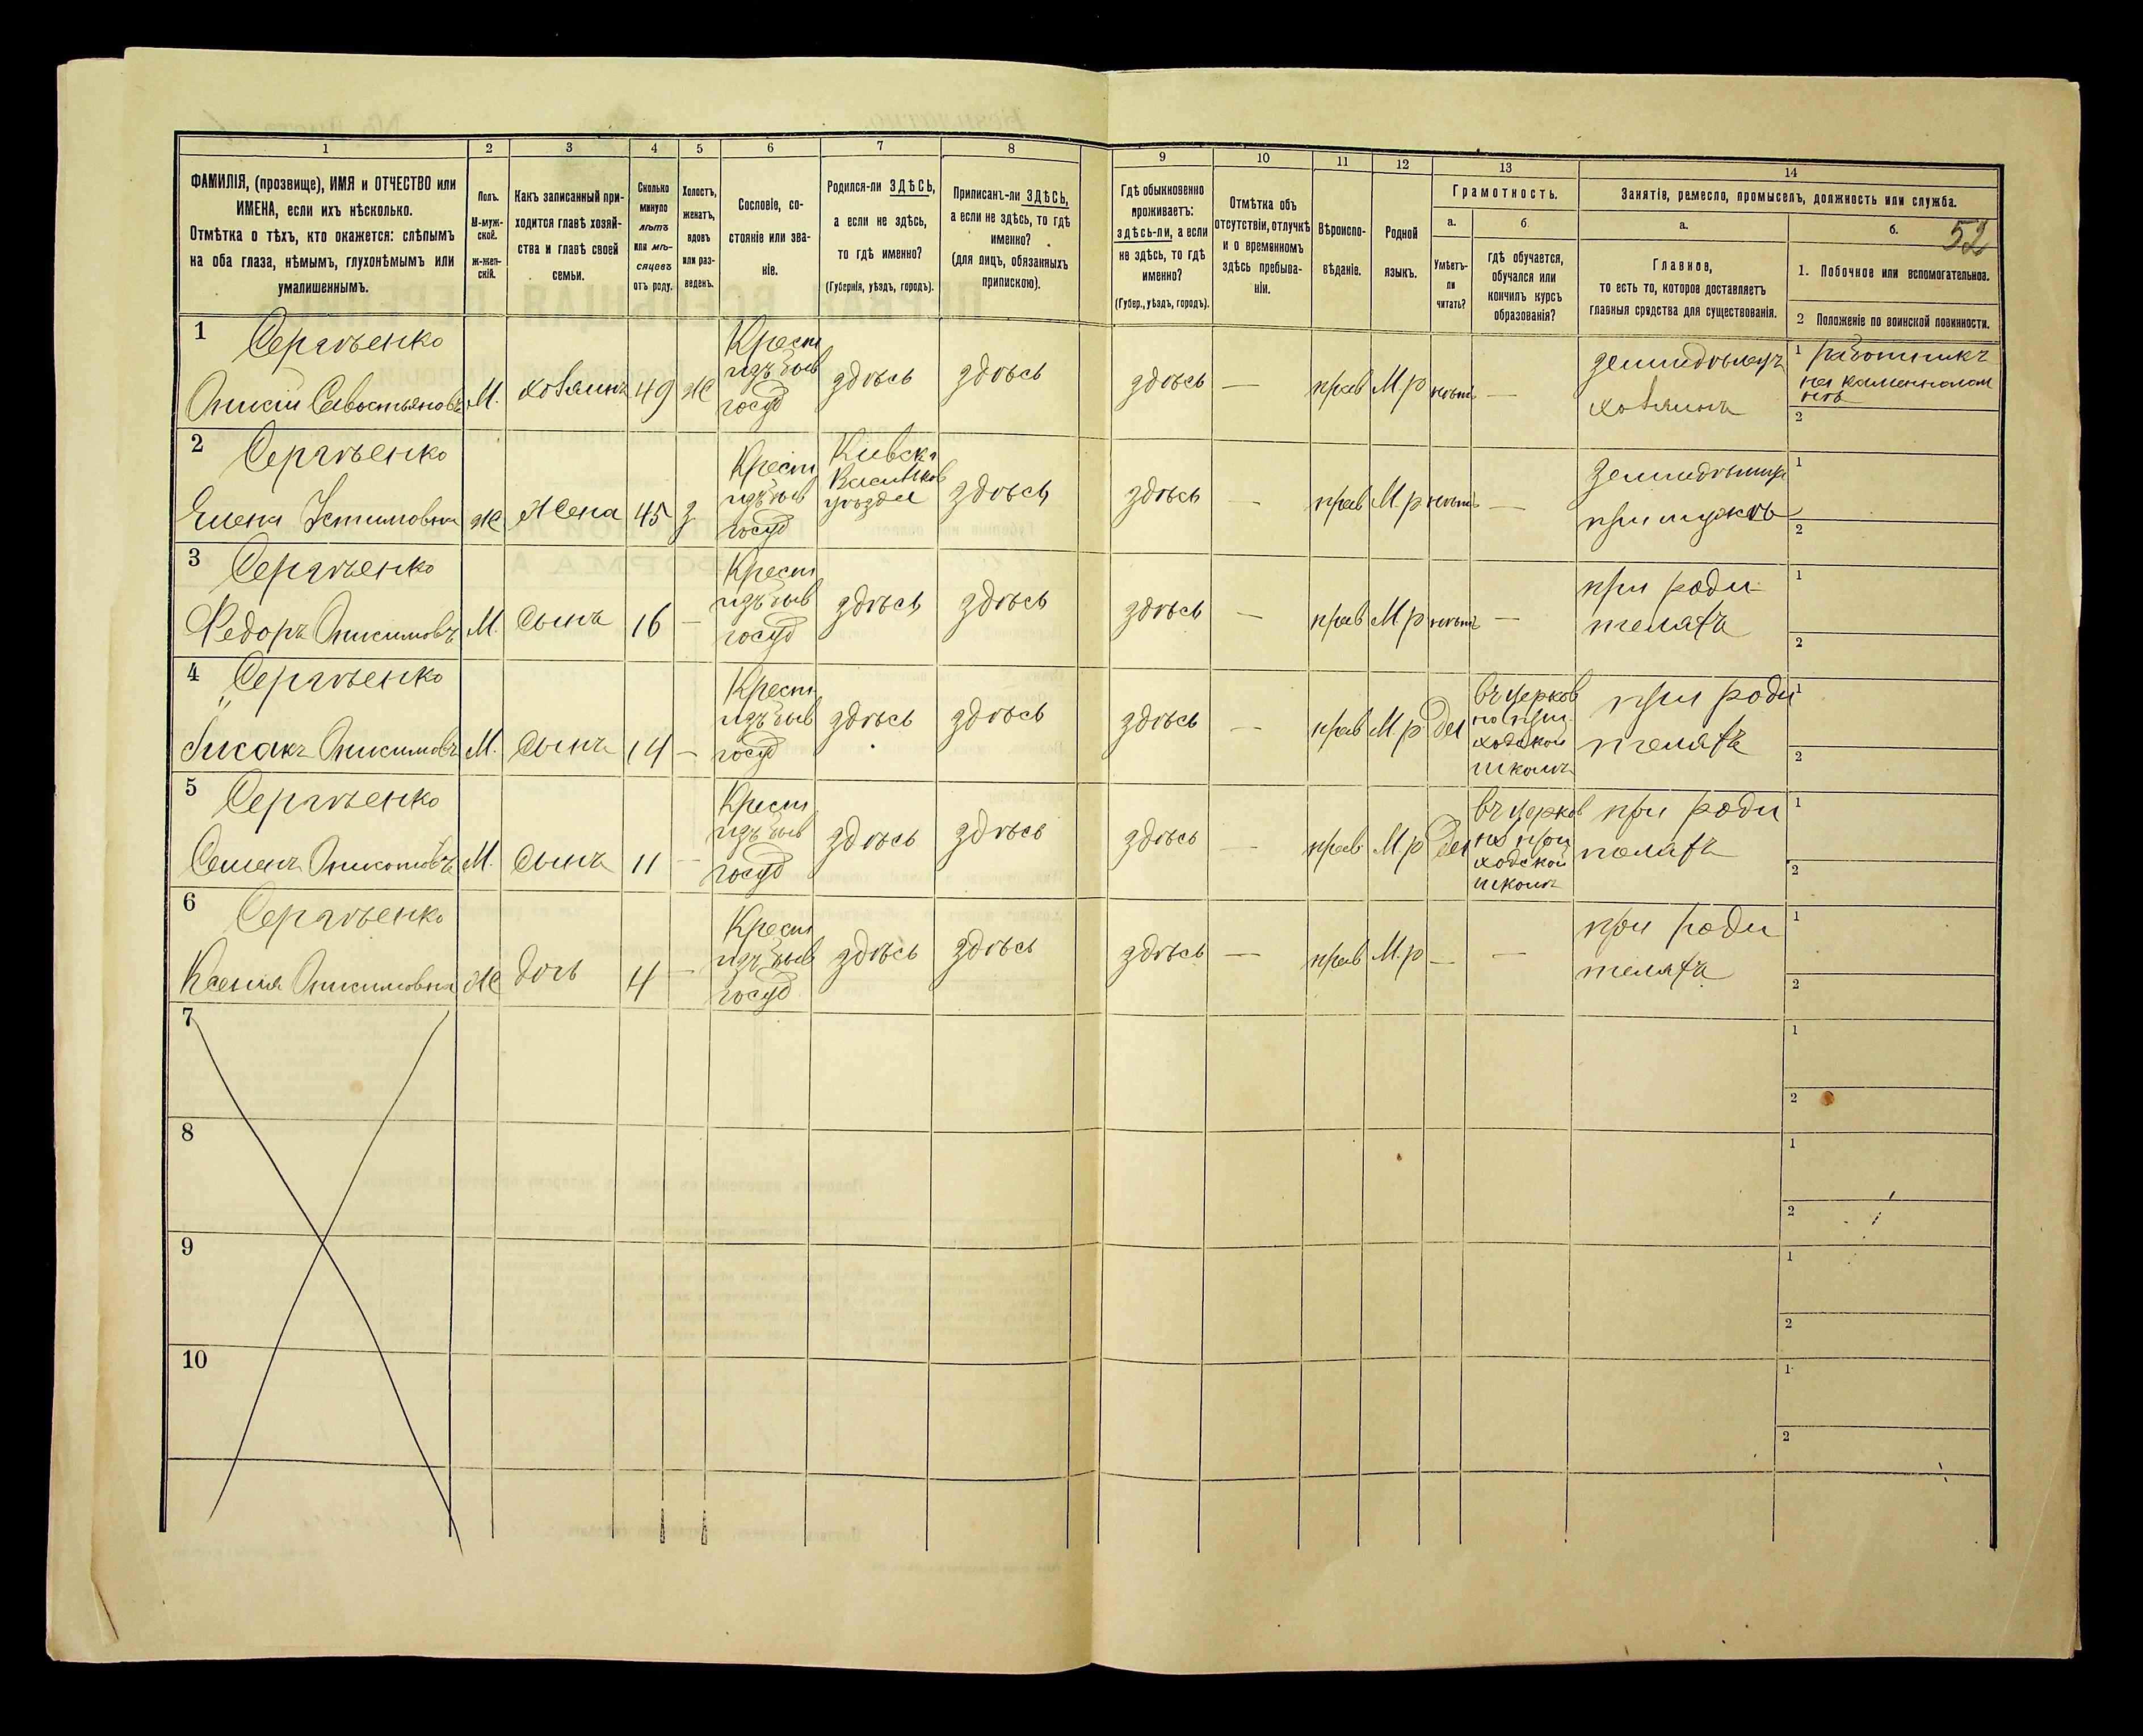 1 2 3 4 5 6 7 8 9 10 11 12 13 14
ФАМИЛІЯ, (прозвище), ИМЯ и ОТЧЕСТВО или
ИМЕНА, если ихъ нѣсколько.
Отмѣтка о тѣхъ, кто окажется: слѣпымъ
на оба глаза, нѣмымъ, глухонѣмымъ или
умалишеннымъ.
Полъ.
М-муж-
ской.
ж-жен-
скій.
Какъ записанный при-
ходится главѣ хозяй-
ства и главѣ своей
семьи.
Сколько
минуло
лѣтъ
или мѣ-
сяцевъ
отъ роду.
Холостъ,
женатъ,
вдовъ
или раз-
веденъ.
Сословіе, со-
стояніе или зва-
ніе.
Родился-ли ЗДѢСЬ,
а если не здѣсь,
то гдѣ именно?
(Губернія, уѣздъ, городъ).
Приписанъ-ли ЗДѢСЬ,
а если не здѣсь, то гдѣ
именно?
(для лицъ, обязанныхъ
припискою).
Гдѣ обыкновенно
проживаетъ:
здѣсь-ли, а если
не здѣсь, то гдѣ
именно?
(Губер., уѣздъ, городъ).
Отмѣтка объ
отсутствіи, отлучкѣ
и о временномъ
здѣсь пребыва-
ніи.
Вѣроиспо-
вѣданіе.
Родной
языкъ.
Грамотность.
а.
Умѣетъ-
ли
читать?
б.
гдѣ обучается,
обучался или
кончилъ курсъ
образованія?
Занятіе, ремесло, промыселъ, должность или служба.
а.
Главное,
то есть то, которое доставляетъ
главныя средства для существованія.
б.
52
1. Побочное или вспомогательное.
2 Положеніе по воинской повинности.
1 Сергѣенко
Онисим Севостьяновъ
М.
хозяинъ
49
ж
Крест
изъ быв
госуд
здѣсь
здѣсь
здѣсь
—
прав
М р
нѣтъ
—
земледѣлецъ
хозяинъ
1 работникъ
на каменолом
нѣ
2
2 Сергѣенко
Елена Устимовна
ж
жена
45
з
Крест
изъ быв
госуд
Киевск
Васильков
уѣзда
здѣсь
здѣсь
—
прав
М. р
нѣтъ
—
земледѣлица
при мужѣ
1
2
3 Сергѣенко
Федоръ Онисимовъ
М.
Сынъ
16
—
Крест
изъ быв
госуд
здѣсь
здѣсь
здѣсь
—
прав
М р
нѣтъ
—
при роди-
теляхъ
1
2
4 Сергѣенко
Исакъ Онисимовъ
М.
Сынъ
14
—
Крест
изъ быв
госуд
здѣсь
здѣсь
здѣсь
—
прав
М. р
да
въ церков
но при-
ходской
школѣ
при роди
теляхъ
1
2
5 Сергѣенко
Семенъ Онисимовъ
М.
Сынъ
11
—
Крест
изъ быв
госуд
здѣсь
здѣсь
здѣсь
—
прав
М р
да
въ церков
но при
ходской
школѣ
при роди
телахъ
1
2
6 Сергѣенко
Ксенія Онисимовна
ж
дочь
4
—
Крест
изъ быв
госуд
здѣсь
здѣсь
здѣсь
—
прав
М. р
—
—
при роди
теляхъ
1
2
7
1
2
8
1
2
9
1
2
10
1
2